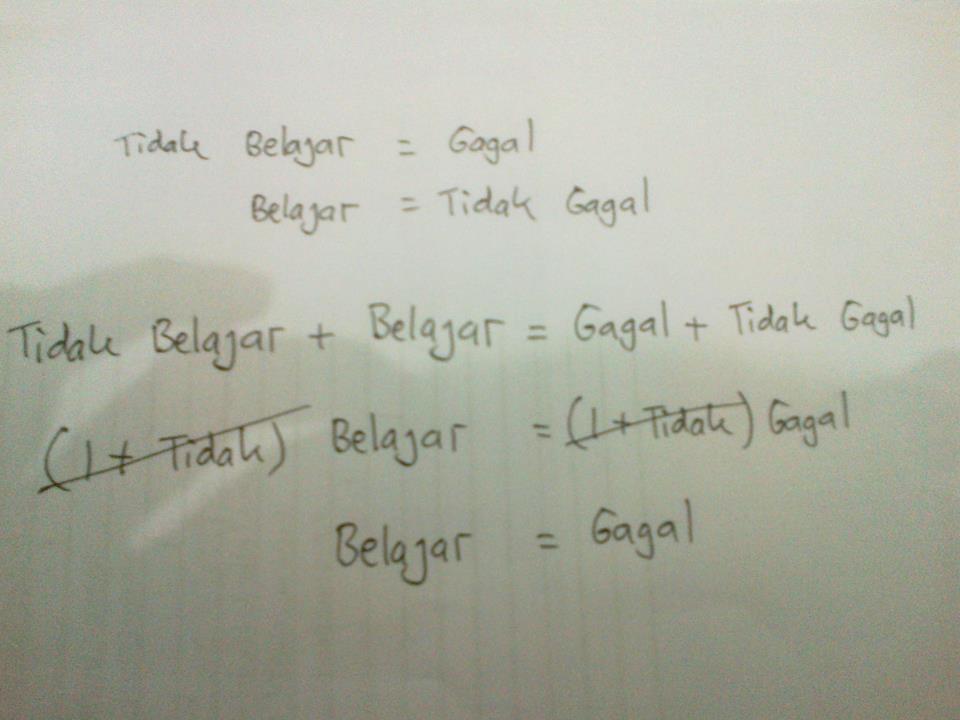 Tidak Belajar = Gagal
Belajar = Tidak Gagal
Tidak Belajar + Belajar = Gagal + Tidak Gagal
(1 + Tidak) Belajar = (1 + Tidak) Gagal
Belajar = Gagal